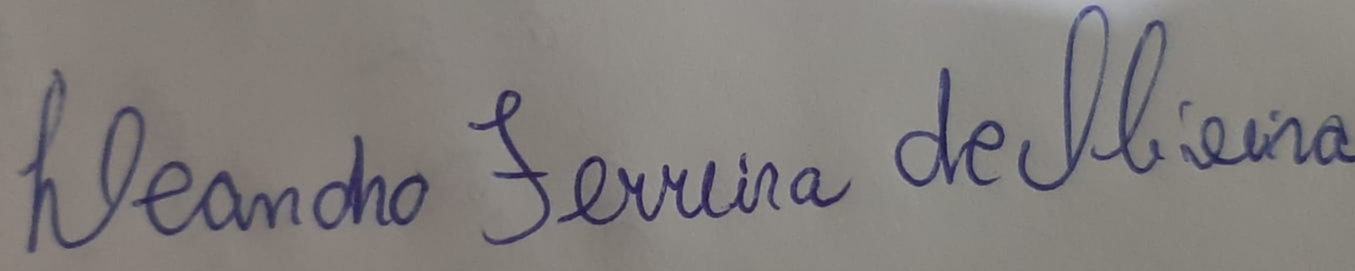 Leandro Ferreira de Oliveira